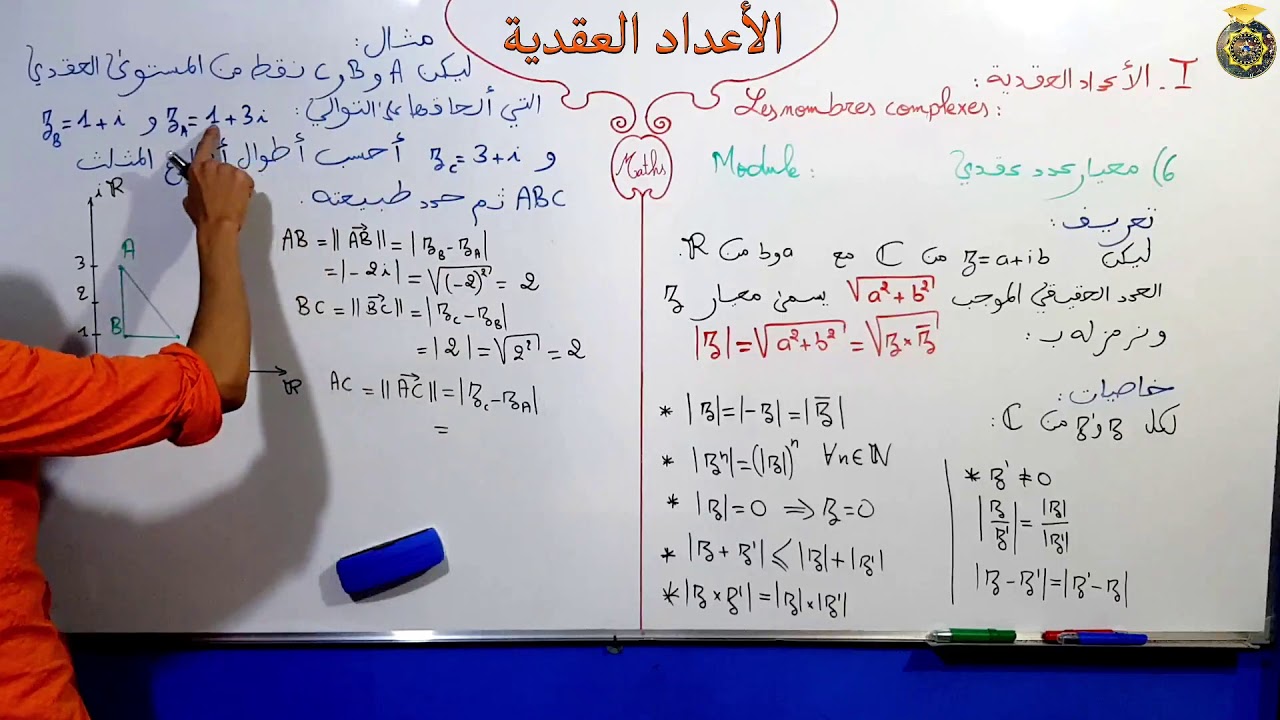 الأعداد العقدية
I. الأعداد العقدية:
Les nombres complexes:
6) معيار عدد عقدي
Module:
تعريف:
ليكن z=a+ib من ℂ مع a و b من ℝ.
العدد الحقيقي الموجب √(a²+b²) يسمى معيار z
ونرمز له ب:
|z|=√(a²+b²)=√(z×z̄)
خاصيات:
لكل z و z' من ℂ:
* |z|=|-z|=|z̄|
* |zⁿ|=(|z|)ⁿ ∀n∈ℕ
* |z|=0 ⇒ z=0
* |z+z'|⩽|z|+|z'|
* |z×z'|=|z|×|z'|
* z'≠0
|z/z'|=|z|/|z'|
|z-z'|=|z'-z|
Maths
مثال:
ليكن A و B و C نقط من المستوى العقدي
التي ألحاقها على التوالي: z_A=1+3i و z_B=1+i
و z_C=3+i أحسب أطوال المثلث
ABC ثم حدد طبيعته.
AB=||AB⃗||=|z_B-z_A|
=|-2i|=√((-2)²)=2
BC=||BC⃗||=|z_C-z_B|
=|2|=√(2²)=2
AC=||AC⃗||=|z_C-z_A|
=
iℝ
A
3
2
B
1
ℝ